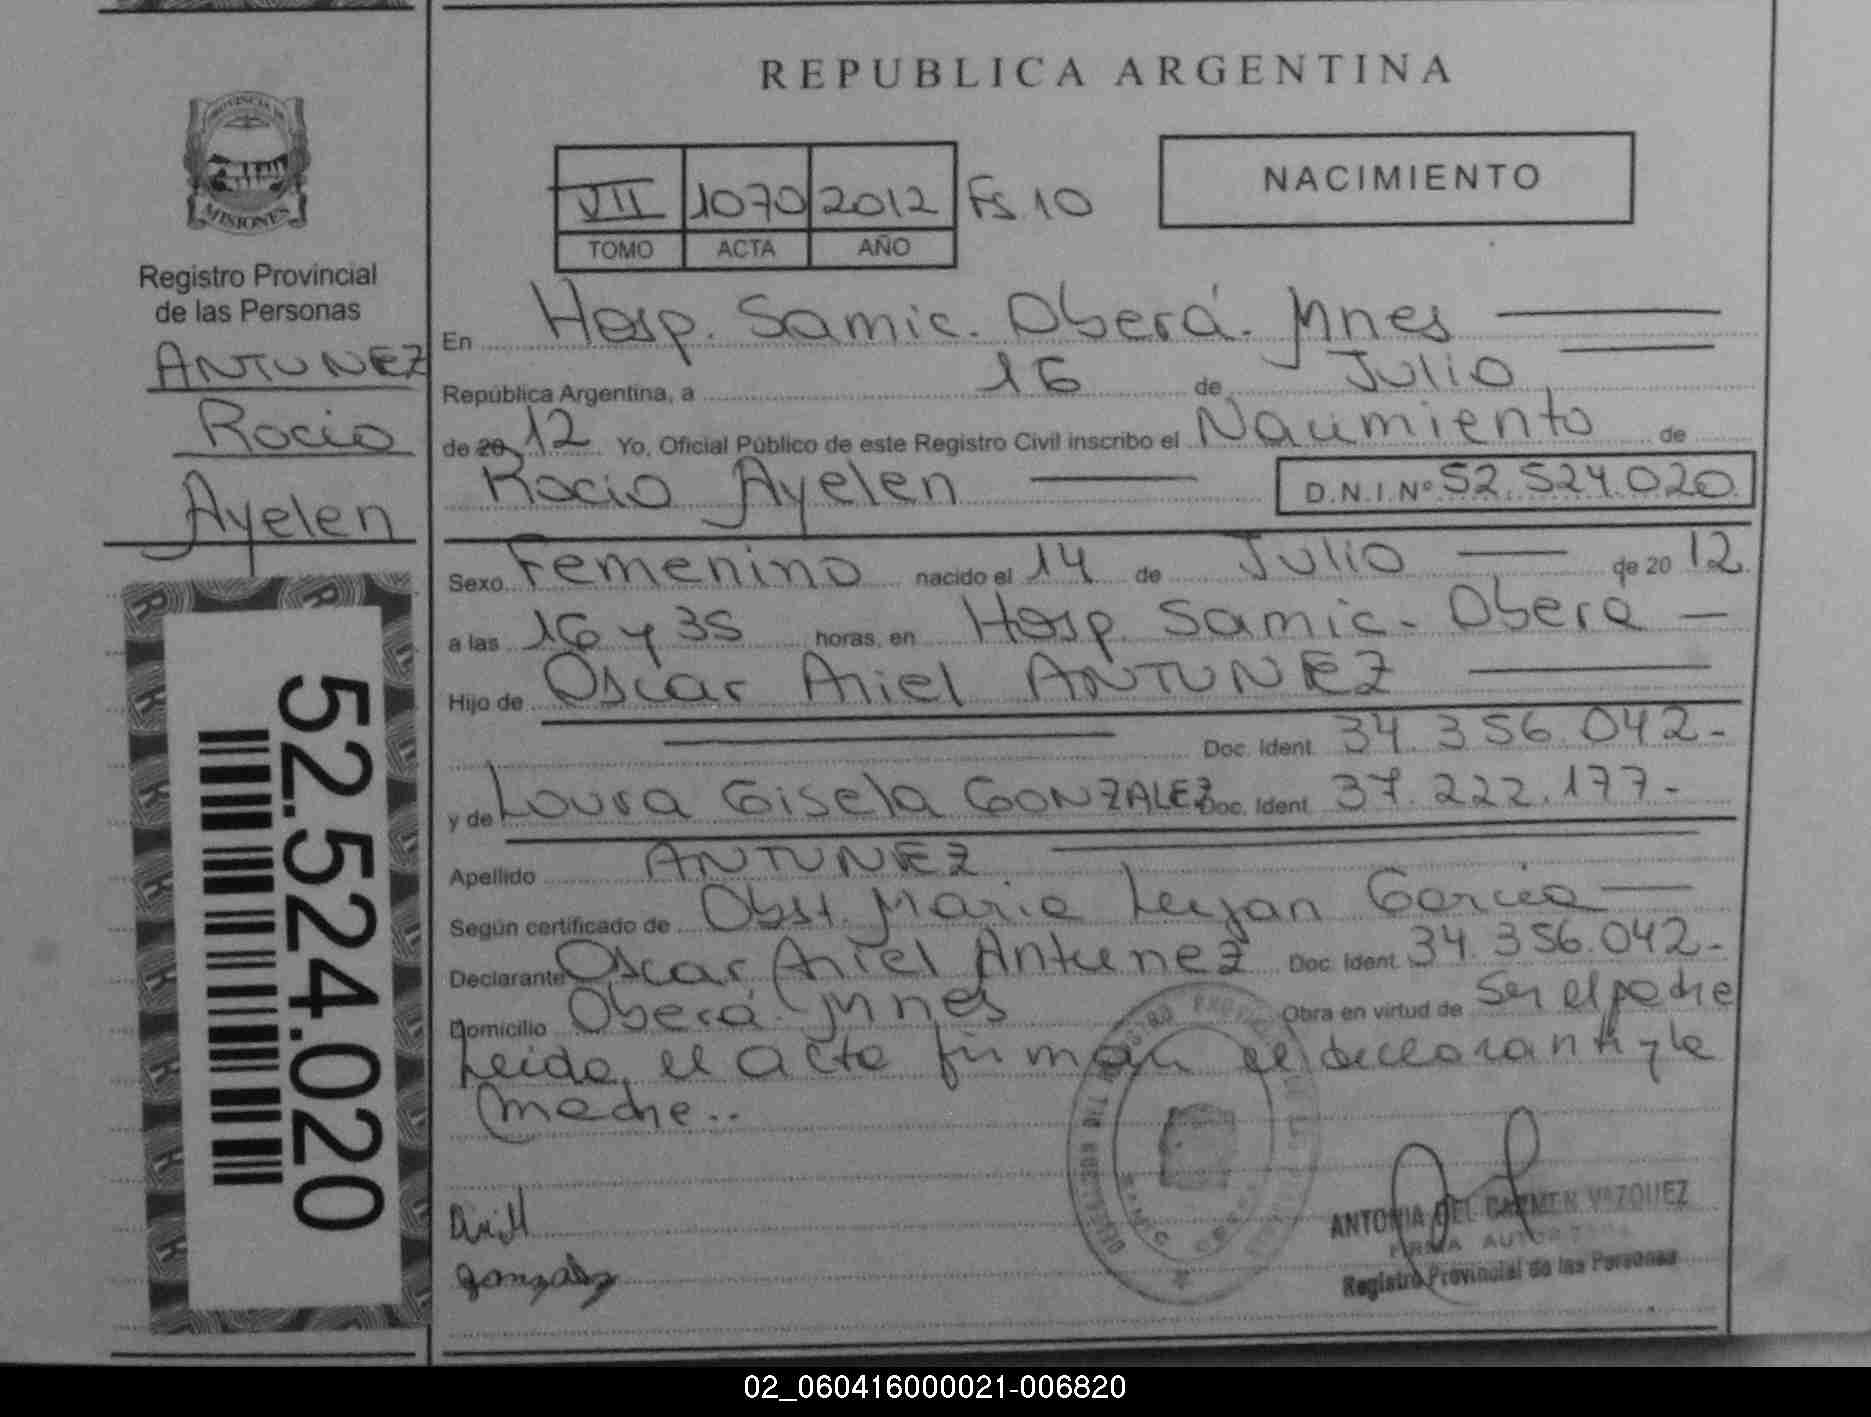 PROVINCIA DE
MISIONES
Registro Provincial
de las Personas
ANTUNEZ
Rocio
Ayelen
52.524.020
REPUBLICA ARGENTINA
VII 1070 2012 Fs 10
TOMO ACTA AÑO
NACIMIENTO
En Hosp. Samic. Oberá. Mnes
República Argentina, a 16 de Julio
de 20 12 Yo, Oficial Público de este Registro Civil inscribo el Nacimiento de
Rocio Ayelen D.N.I.Nº 52.524.020
Sexo Femenino nacido el 14 de Julio de 20 12
a las 16 y 35 horas, en Hosp. Samic. Oberá
Hijo de Oscar Ariel ANTUNEZ
Doc. Ident. 34.356.042-
y de Laura Gisela GONZALEZ Doc. Ident. 37.222.177-
Apellido ANTUNEZ
Según certificado de Obst. Maria Lujan Garcia
Declarante Oscar Ariel Antunez Doc. Ident. 34.356.042-
Domicilio Oberá. Mnes Obra en virtud de Ser el padre
Leida el acta firman el declarante y la
madre..
Gonzalez
ANTONIA DEL CARMEN VAZQUEZ
FIRMA AUTORIZADA
Registro Provincial de las Personas
02_060416000021-006820